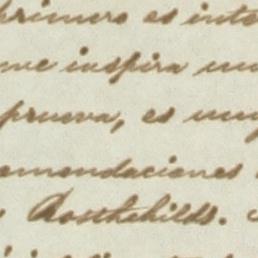 primero es inte
me inspira un
prueva, es muy
omendaciones
Rosthchilds.